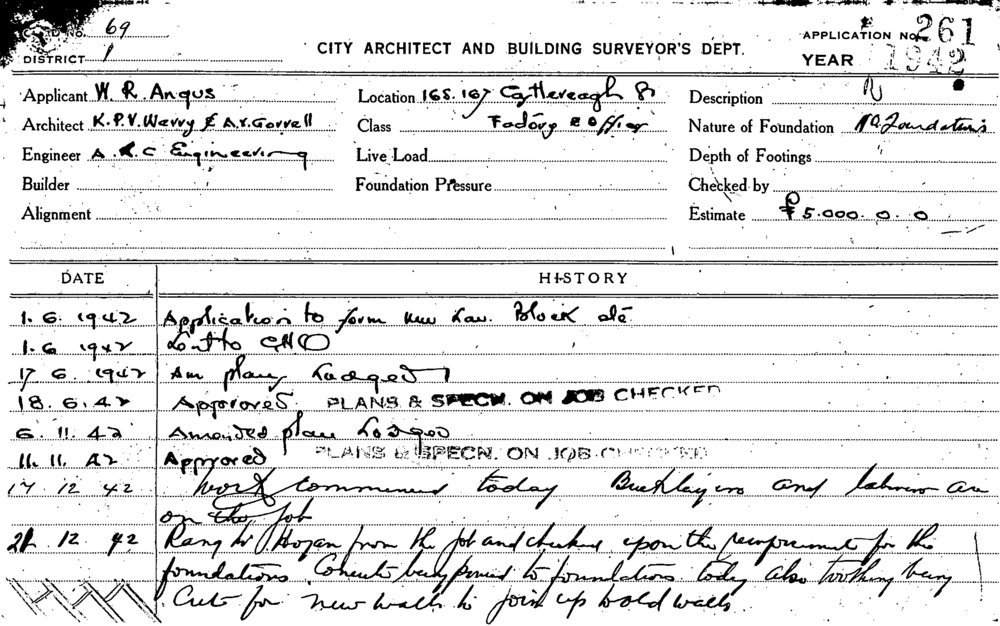 CARD No. 69
DISTRICT 1
CITY ARCHITECT AND BUILDING SURVEYOR'S DEPT.
APPLICATION No. 261
YEAR 1942
Applicant W. R. Angus
Location 165.167
Description
Architect K.P.V. Werry & A.V. Gorrell
Class Factory & Offices
Nature of Foundation No. Foundations
Engineer A.R.C Engineering
Live Load
Depth of Footings
Builder
Foundation Pressure
Checked by
Alignment
Estimate £5.000.0.0
DATE HISTORY
1.6.1942 Application to form new Lav. Block etc
1.6 1942 Sent to CHO
17 6.1942 Am plans Lodged
18.6.42 Approved. PLANS & SPECN. ON JOB CHECKED
6.11.42 Amended plan Lodged
11.11.42 Approved PLANS & SPECN. ON JOB CHECKED
17 12 42 Work commenced today Bricklayers and labourers are
on the job
21.12.42 Rang Mr Hogan from the job and checked upon the reinforcement for the
foundations. Concrete being poured to foundations today also toothing being
Cut for new walls to join up to old walls.